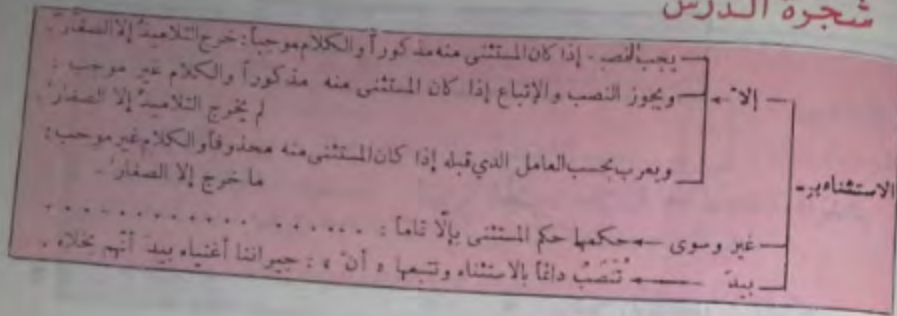 شجرة الدرس
الاستثناء بـ
إلاّ
يجب النصب . إذا كان المستثنى منه مذكوراً والكلام موجباً : خرج التلاميذُ إلا الصغارَ .
ويجوز النصب والإتباع إذا كان المستثنى منه مذكوراً والكلام غير موجب :
لم يخرج التلاميذُ إلا الصغارُ .
ويعرب بحسب العامل الذي قبله إذا كان المستثنى منه محذوفاً والكلام غير موجب :
ما خرج إلا الصغارُ .
غير وسوى حكمها حكم المستثنى بإلّا تماماً : . . . . . . . . . . . . . . . .
بيدَ تُنصَبُ دائماً بالاستثناء وتتبعها « أنّ » : جيراننا أغنياء بيدَ أنّهم بخلاء .